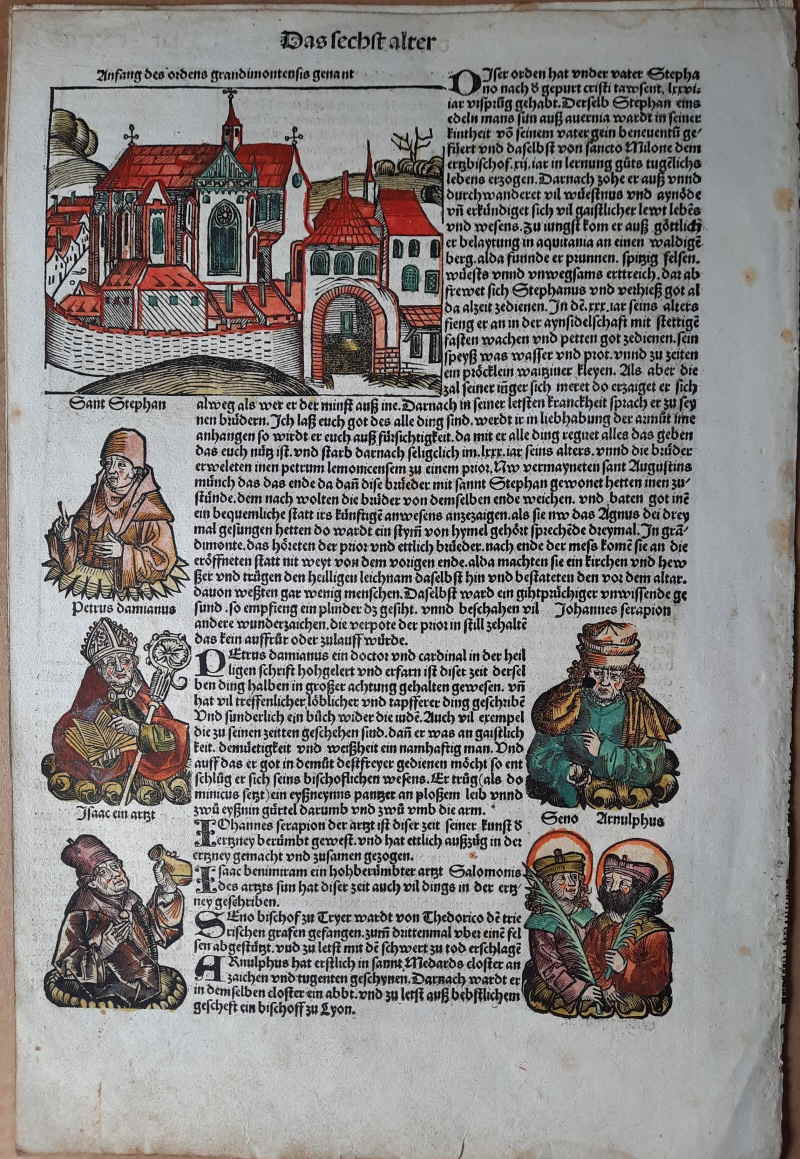 Das sechst alter
Anfang des ordens grandimontensis genant
DIser orden hat vnder vater Stepha
no nach d᷑ gepurt cristi tawsent. lxxvi.
iar vrsprūg gehabt. Derselb Stephan eins
edeln mans sun auß auernia wardt in seiner
kintheit vō seinem vater gein beneuentū ge⸗
fuͤert vnd daselbst von sancto Milone dem
ertzbischof. xij. iar in lernung guͦts tugẽlichs
lebens erzogen. Darnach zohe er auß vnnd
durchwanderet vil wuͤestnus vnd aynoͤde
vn̄ erkuͤndiget sich vil gaistlicher lewt lebēs
vnd wesens. Zu iungst kom er auß goͤtlich
er belaytung in aquitania an einen waldigē
berg. alda funde er prunnen. spitzig felsen.
wuͤests vnnd vnwegsams erttreich. dar ab
frewet sich Stephanus vnd verhieß got al
da alzeit zedienen. In dē. xxx. iar seins alters
fieng er an in der aynsidelschaft mit stettigē
fasten wachen vnd petten got zedienen. sein
speyß was wasser vnd prot. vnnd zu zeiten
ein proͤcklein waitziner kleyen. Als aber die
zal seiner iuͤger sich meret do erzaiget er sich
Sant Stephan
alweg als wer er der minst auß ine. Darnach in seiner letsten kranckheit sprach er zu sey
nen bruͤdern. Ich laß euch got des alle ding sind. werdt ir in liebhabung der armuͦt ime
anhangen so wirdt er euch auß fuͤrsichtigkeit. da mit er alle ding regiret alles das geben
das euch nuͤtz ist. vnd starb darnach seligelich im. lxxx. iar seins alters. vnnd die bruͤder
erweleten inen petrum lemonicensem zu einem prior. Nw vermayneten sant Augustins
muͤnch das das ende da dañ dise bruͤeder mit sannt Stephan gewonet hetten inen zu⸗
stuͤnde. dem nach wolten die bruͤder von demselben ende weichen. vnd baten got inē
ein bequemliche statt irs kuͤnftigē anwesens anzezaigen. als sie nw das Agnus dei drey
mal gesungen hetten do wardt ein stym̄ von hymel gehoͤrt sprechēde dreymal. In grā⸗
dimonte. das hoͤreten der prior vnd ettlich bruͤeder. nach ende der mess komē sie an die
eroͤffneten statt nit weyt von dem vorigen ende. alda machten sie ein kirchen vnd hew
ßer vnd truͦgen den heilligen leichnam daselbst hin vnd bestateten den vor dem altar.
dauon weßten gar wenig menschen. Daselbst ward ein gihtpruͤchiger vnwissende ge
Petrus damianus
sund. so empfieng ein plinder dz gesiht. vnnd beschahen vil
Johannes serapion
andere wunderzaichen. die verpote der prior in still zehaltē
das kein auffruͦr oder zulauff wuͤrde.
PEtrus damianus ein doctor vnd cardinal in der heil
ligen schrift hohgelert vnd erfarn ist diser zeit dersel
ben ding halben in großer achtung gehalten gewesen. vn̄
hat vil treffenlicher loͤblicher vnd tapfferer ding geschribē
Vnd sunderlich ein buͦch wider die iudē. Auch vil exempel
die zu seinen zeitten geschehen sind. dañ er was an gaistlich
keit. demuͤetigkeit vnd weißheit ein namhaftig man. Vnd
auff das er got in demuͦt destfreyer gedienen moͤcht so ent
schluͦg er sich seins bischoflichen wesens. Er truͦg (als do
minicus setzt) ein eyßneynns pantzer an ploßem leib vnnd
zwuͦ eyßnin guͤrtel darumb vnd zwuͦ vmb die arm.
Isaac ein artzt
IOhannes serapion der artzt ist diser zeit seiner kunst d᷑
ertzney beruͤmbt gewest. vnd hat ettlich außzuͤg in der
ertzney gemacht vnd zusamen gezogen.
Seno Arnulphus
ISaac benimiram ein hohberuͤmbter artzt Salomonis
des artzts sun hat diser zeit auch vil dings in der ertz⸗
ney geschriben.
SEno bischof zu Tryer wardt von Thedorico dē trie
rischen grafen gefangen. zum̄ drittenmal vber einē fel
sen abgestuͤrtzt. vnd zu letst mit dē schwert zu tod erschlagē
ARnulphus hat erstlich in sannt Medards closter an
zaichen vnd tugenten geschynen. Darnach wardt er
in demselben closter ein abbt. vnd zu letst auß bebstlichem
gescheft ein bischoff zu Lyon.